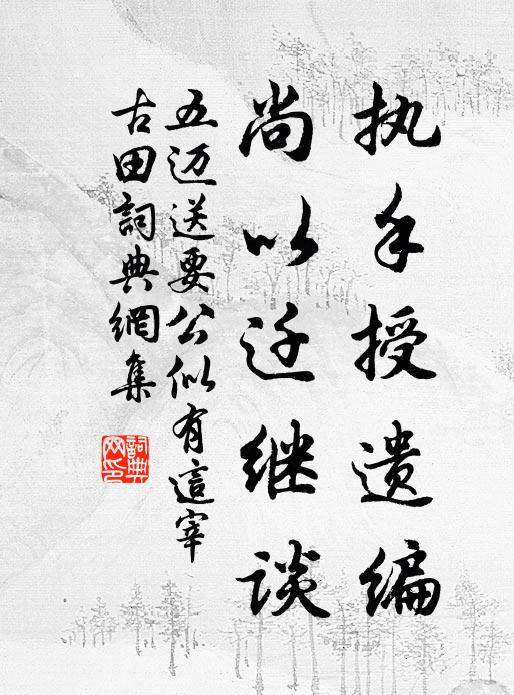 执手授遗编
尚以迁继谈
五迈送要公似有這宰
古田詞典網集
詞典
网印